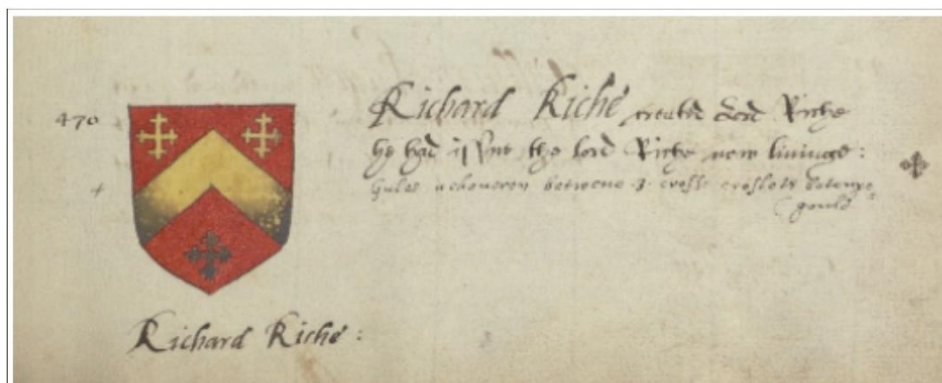 470
Richard Riche created Lord Riche
he had issue the lord Riche now livinge :
Gules a cheueron betwene 3 crosse croslets botonye
gould
Richard Riche :